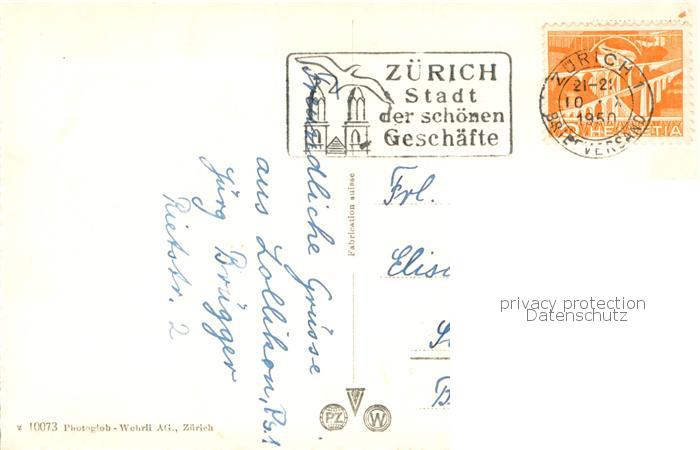 ZÜRICH
Stadt
der schönen
Geschäfte
ZÜRICH 1
21-2
10 X
1950
BRIEFVERSAND
HELVETIA
Freundliche Grüsse
aus Zollikon,
Jürg Brügger
Rietstr. 2
Fabrication suisse
Frl.
Elis
privacy protection
Datenschutz
PZ
W
z 10073 Photoglob - Wehrli AG., Zürich